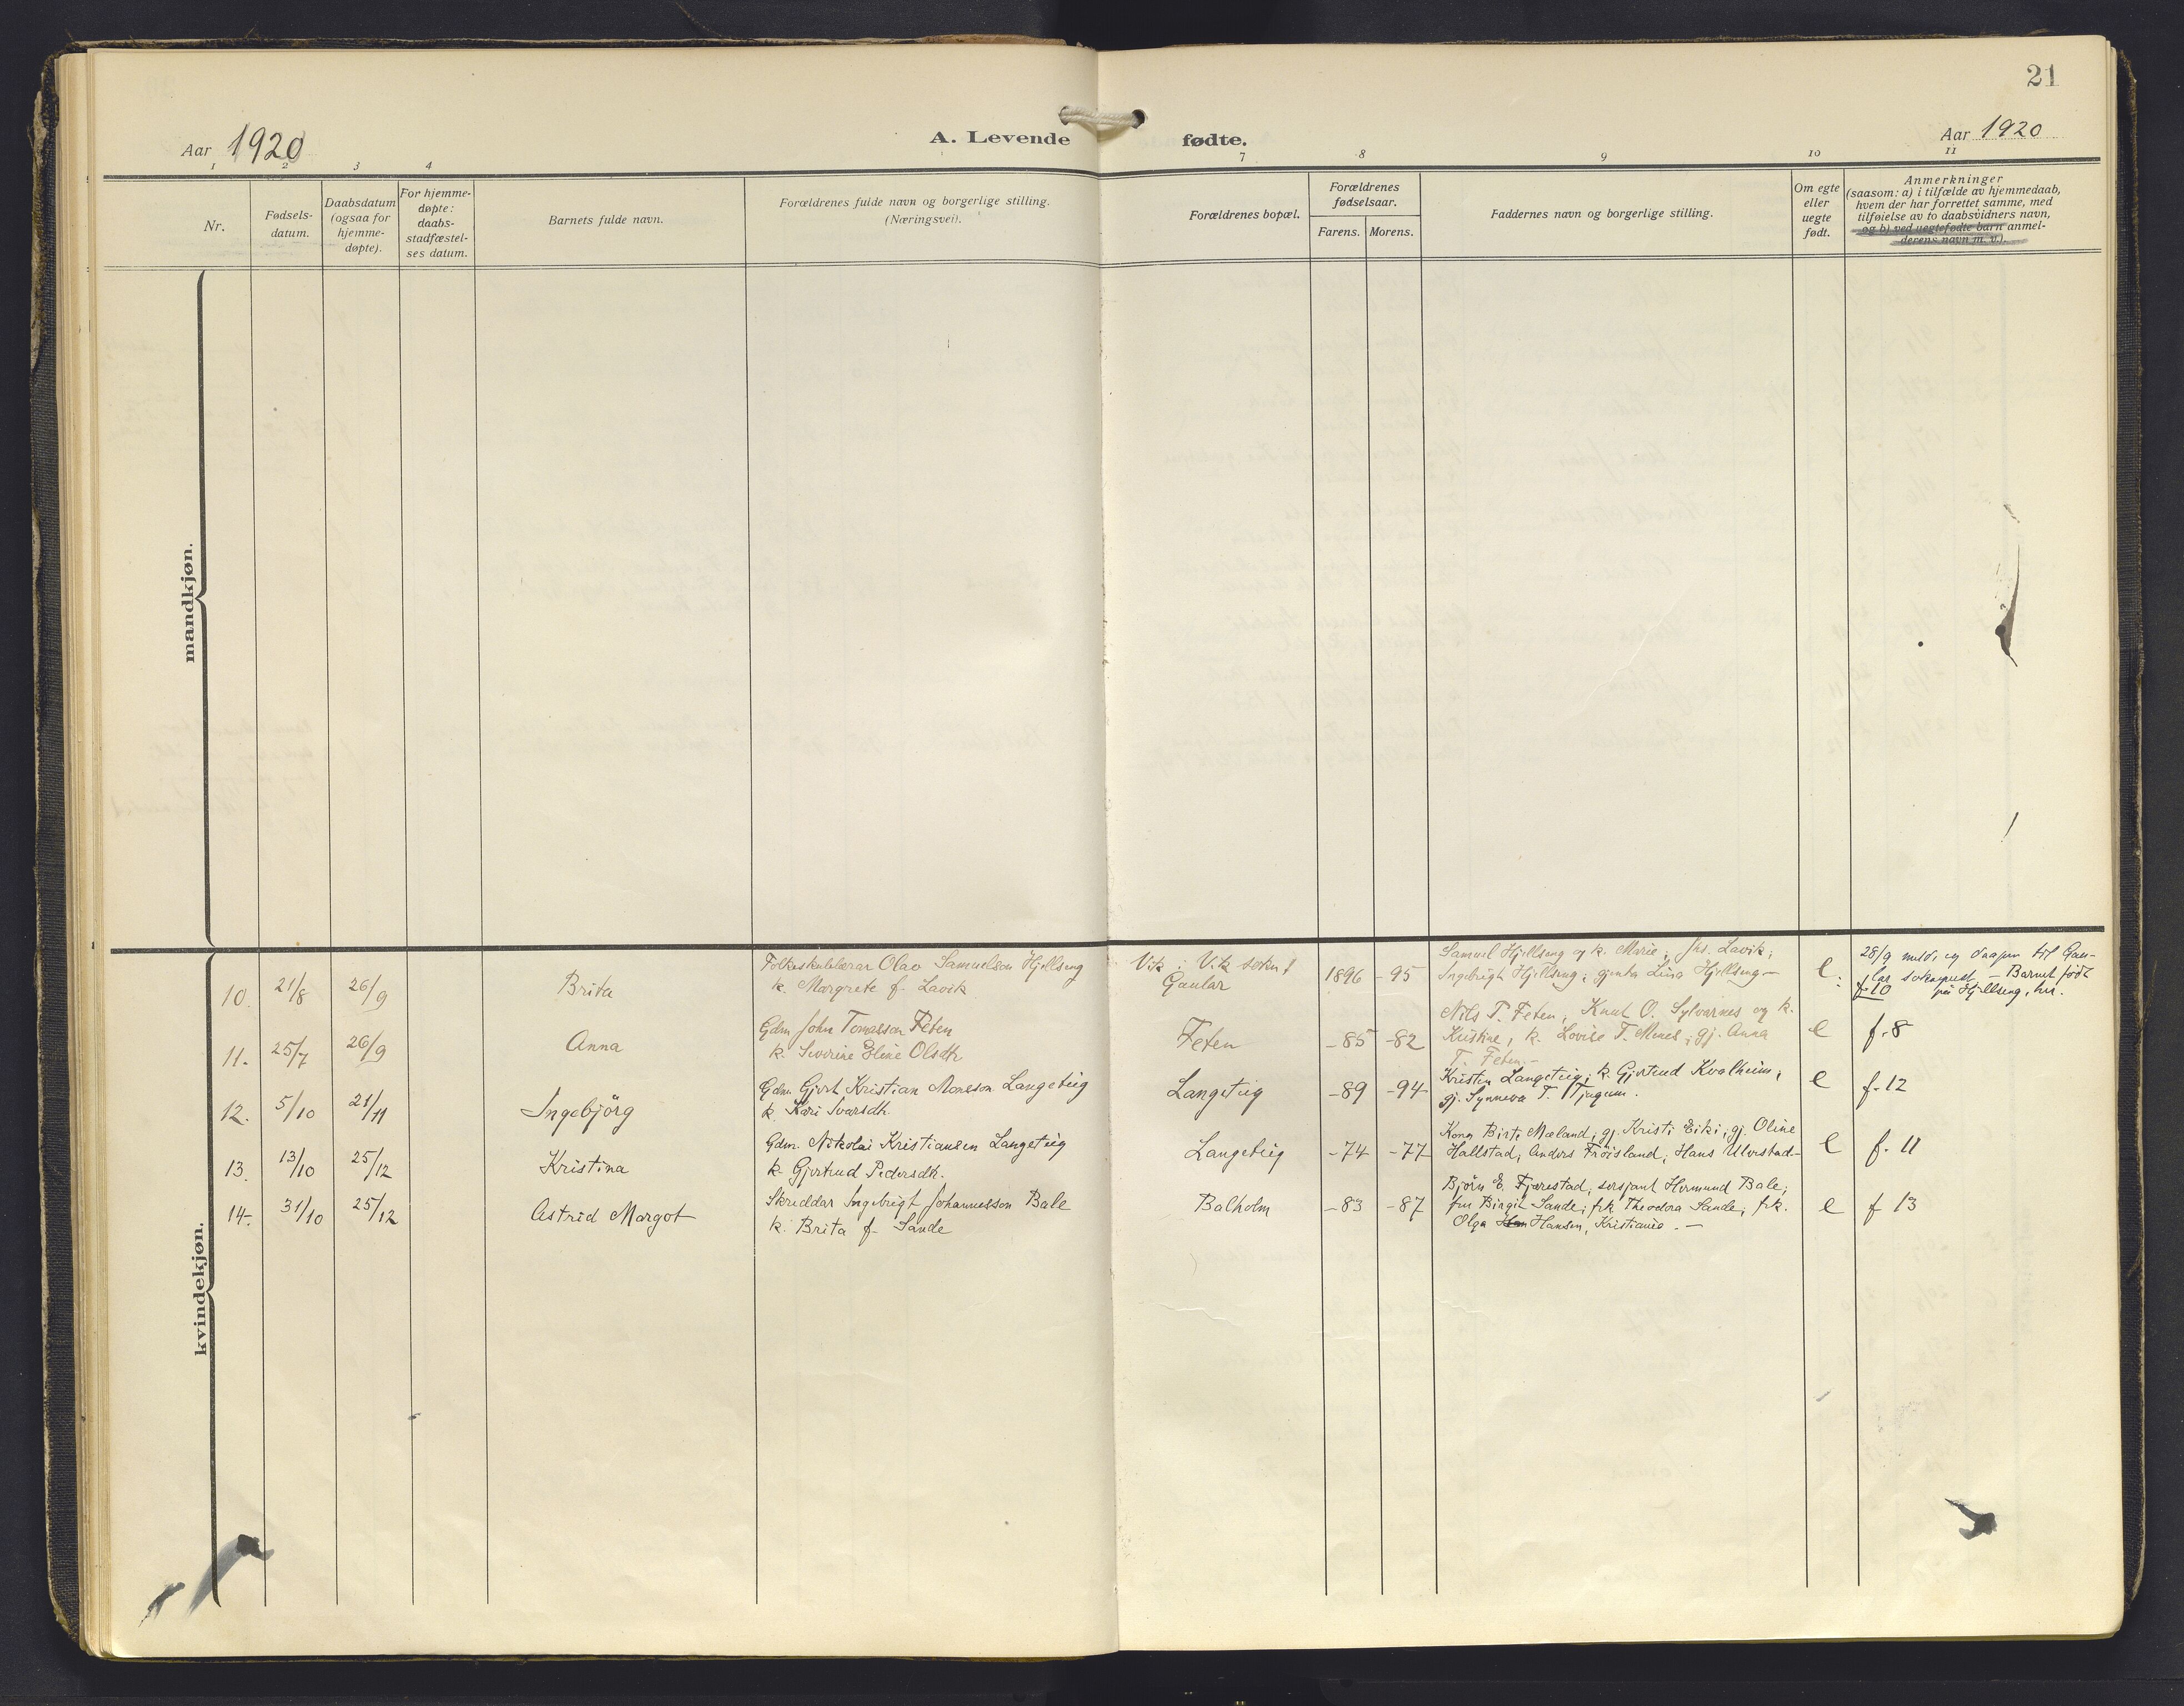 21
Aar 1920
A. Levende fødte.
Aar 1920
1 2 3 4 7 8 9 10 11
Nr.
Fødsels-
datum.
Daabsdatum
(ogsaa for
hjemme-
døpte).
For hjemme-
døpte:
daabs-
stadfæstel-
ses datum.
Barnets fulde navn.
Forældrenes fulde navn og borgerlige stilling.
(Næringsvei).
Forældrenes bopæl.
Forældrenes
fødselsaar.
Farens. Morens.
Faddernes navn og borgerlige stilling.
Om egte
eller
uegte
født.
Anmerkninger
(saasom: a) i tilfælde av hjemmedaab,
hvem der har forrettet samme, med
tilføielse av to daabsvidners navn,
og b) ved uegtefødte barn anmel-
derens navn m. v.).
mandkjøn.
kvindekjøn.
10. 21/8 26/9 Brita
Folkeskulelærar Olav Samuelson Hjellseng
k. Margrete f. Lavik
Vik i Vik sokn i
Gaular
1896 -95
Samuel Hjellseng og k. Marie; Lavik;
Ingebrigt Hjellseng; gjenta Lina Hjellseng -
e.
28/9 til Gau-
lar - Barnet født
f. 10 på Hjellseng, her.
11. 25/7 26/9 Anna
Gdm. John Tomasson Feten
k. Severine Eline Olsdtr
Feten
-85 -82
Nils T. Feten, Knut O. Sylvarnes og k.
Kristine, k. Lovise T. Menes; gj. Anna
T. Feten. -
e f. 8
12. 5/10 21/11 Ingebjörg
Gdm. Gjert Kristian Monsson Langeteig
k. Kari Ivarsdtr.
Langeteig
-89 -94
Kristen Langeteig; k. Gjertrud Kvalheim;
gj. Synneva T. Tjugum.
e f. 12
13. 13/10 25/12 Kristina
Gdm. Nikolai Kristiansen Langeteig
k. Gjertrud Pedersdtr.
Langeteig
-74 -77
Kona Birte Mæland; gj. Kristi Eiki; gj. Oline
Hallstad; Anders Fröisland; Hans Ulvestad -
e f. 11
14. 31/10 25/12 Astrid Margot
Skreddar Ingebrigt Johannesson Bale
k. Brita f. Sande
Balholm
-83 -87
Björn E. Fjærestad; sersjant Hermund Bale;
fru Birgit Sande; frk Theodora Sande; frk.
Olga Han Hansen, Kristiania. -
e f 13